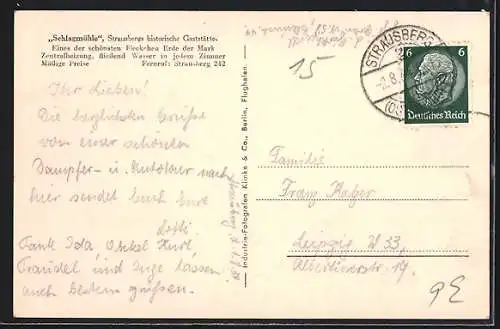 „Schlagmühle", Strausbergs historische Gaststätte.
Eines der schönsten Fleckchen Erde der Mark
Zentralheizung, fließend Wasser in jedem Zimmer
Mäßige Preise Fernruf: Strausberg 242
Ihr Lieben!
Die herzlichsten Grüße
von einer schönen
Dampfer- u. Autotour nach
hier sendet Euch Eure
Lotti
Tante Ida Onkel Kurt
Traudel und Inge lassen
auch bestens grüßen.
Industrie-Fotografen Klinke & Co., Berlin, Flughafen
15
STRAUSBERG
-2.8.
6 6
Deutsches Reich
Familie
Franz
Leipzig W 33,
Albertinerstr. 19.